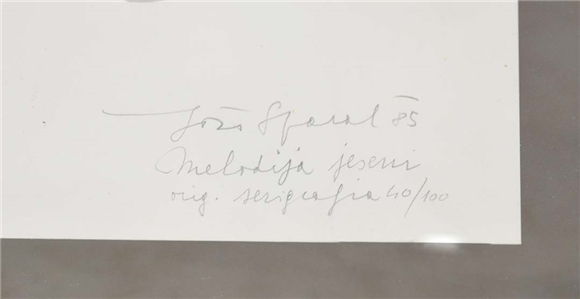 Jože Spacal 85
Melodija jeseni
orig. serigrafia 40/100